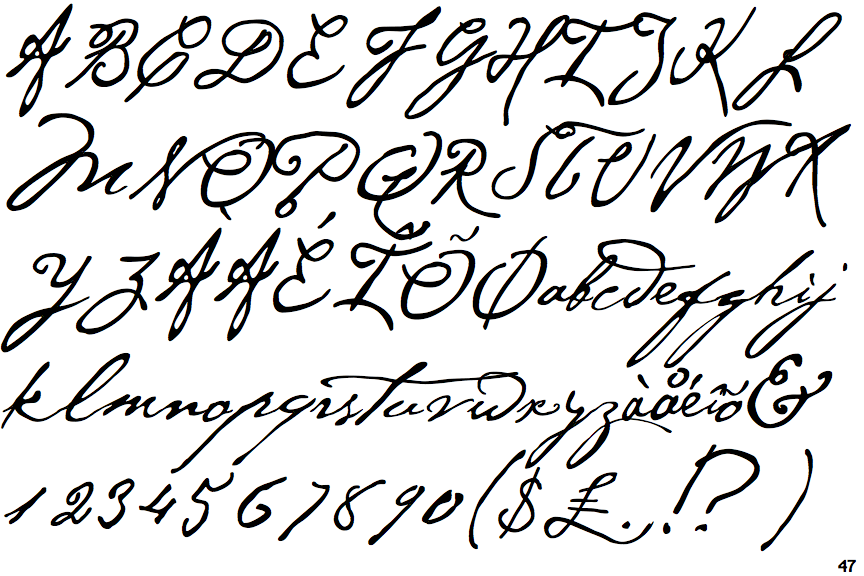 ABCDEFGHIJKL
MNOPQRSTUVWX
YZÀÅÉÎÕØabcdefghij
klmnopqrstuvwxyzàåéîõ&
1234567890($£.!?)
47